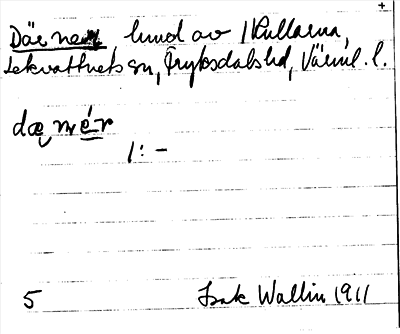 +
Där ner hmd av /Kullarna,
Lekvattnets sn, Fryksdals hd, Värml. l.
dæ nér
/: –
5 Isak Wallin 1911